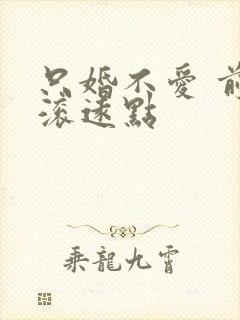 只婚不愛 前
滾遠點
乘龍九霄